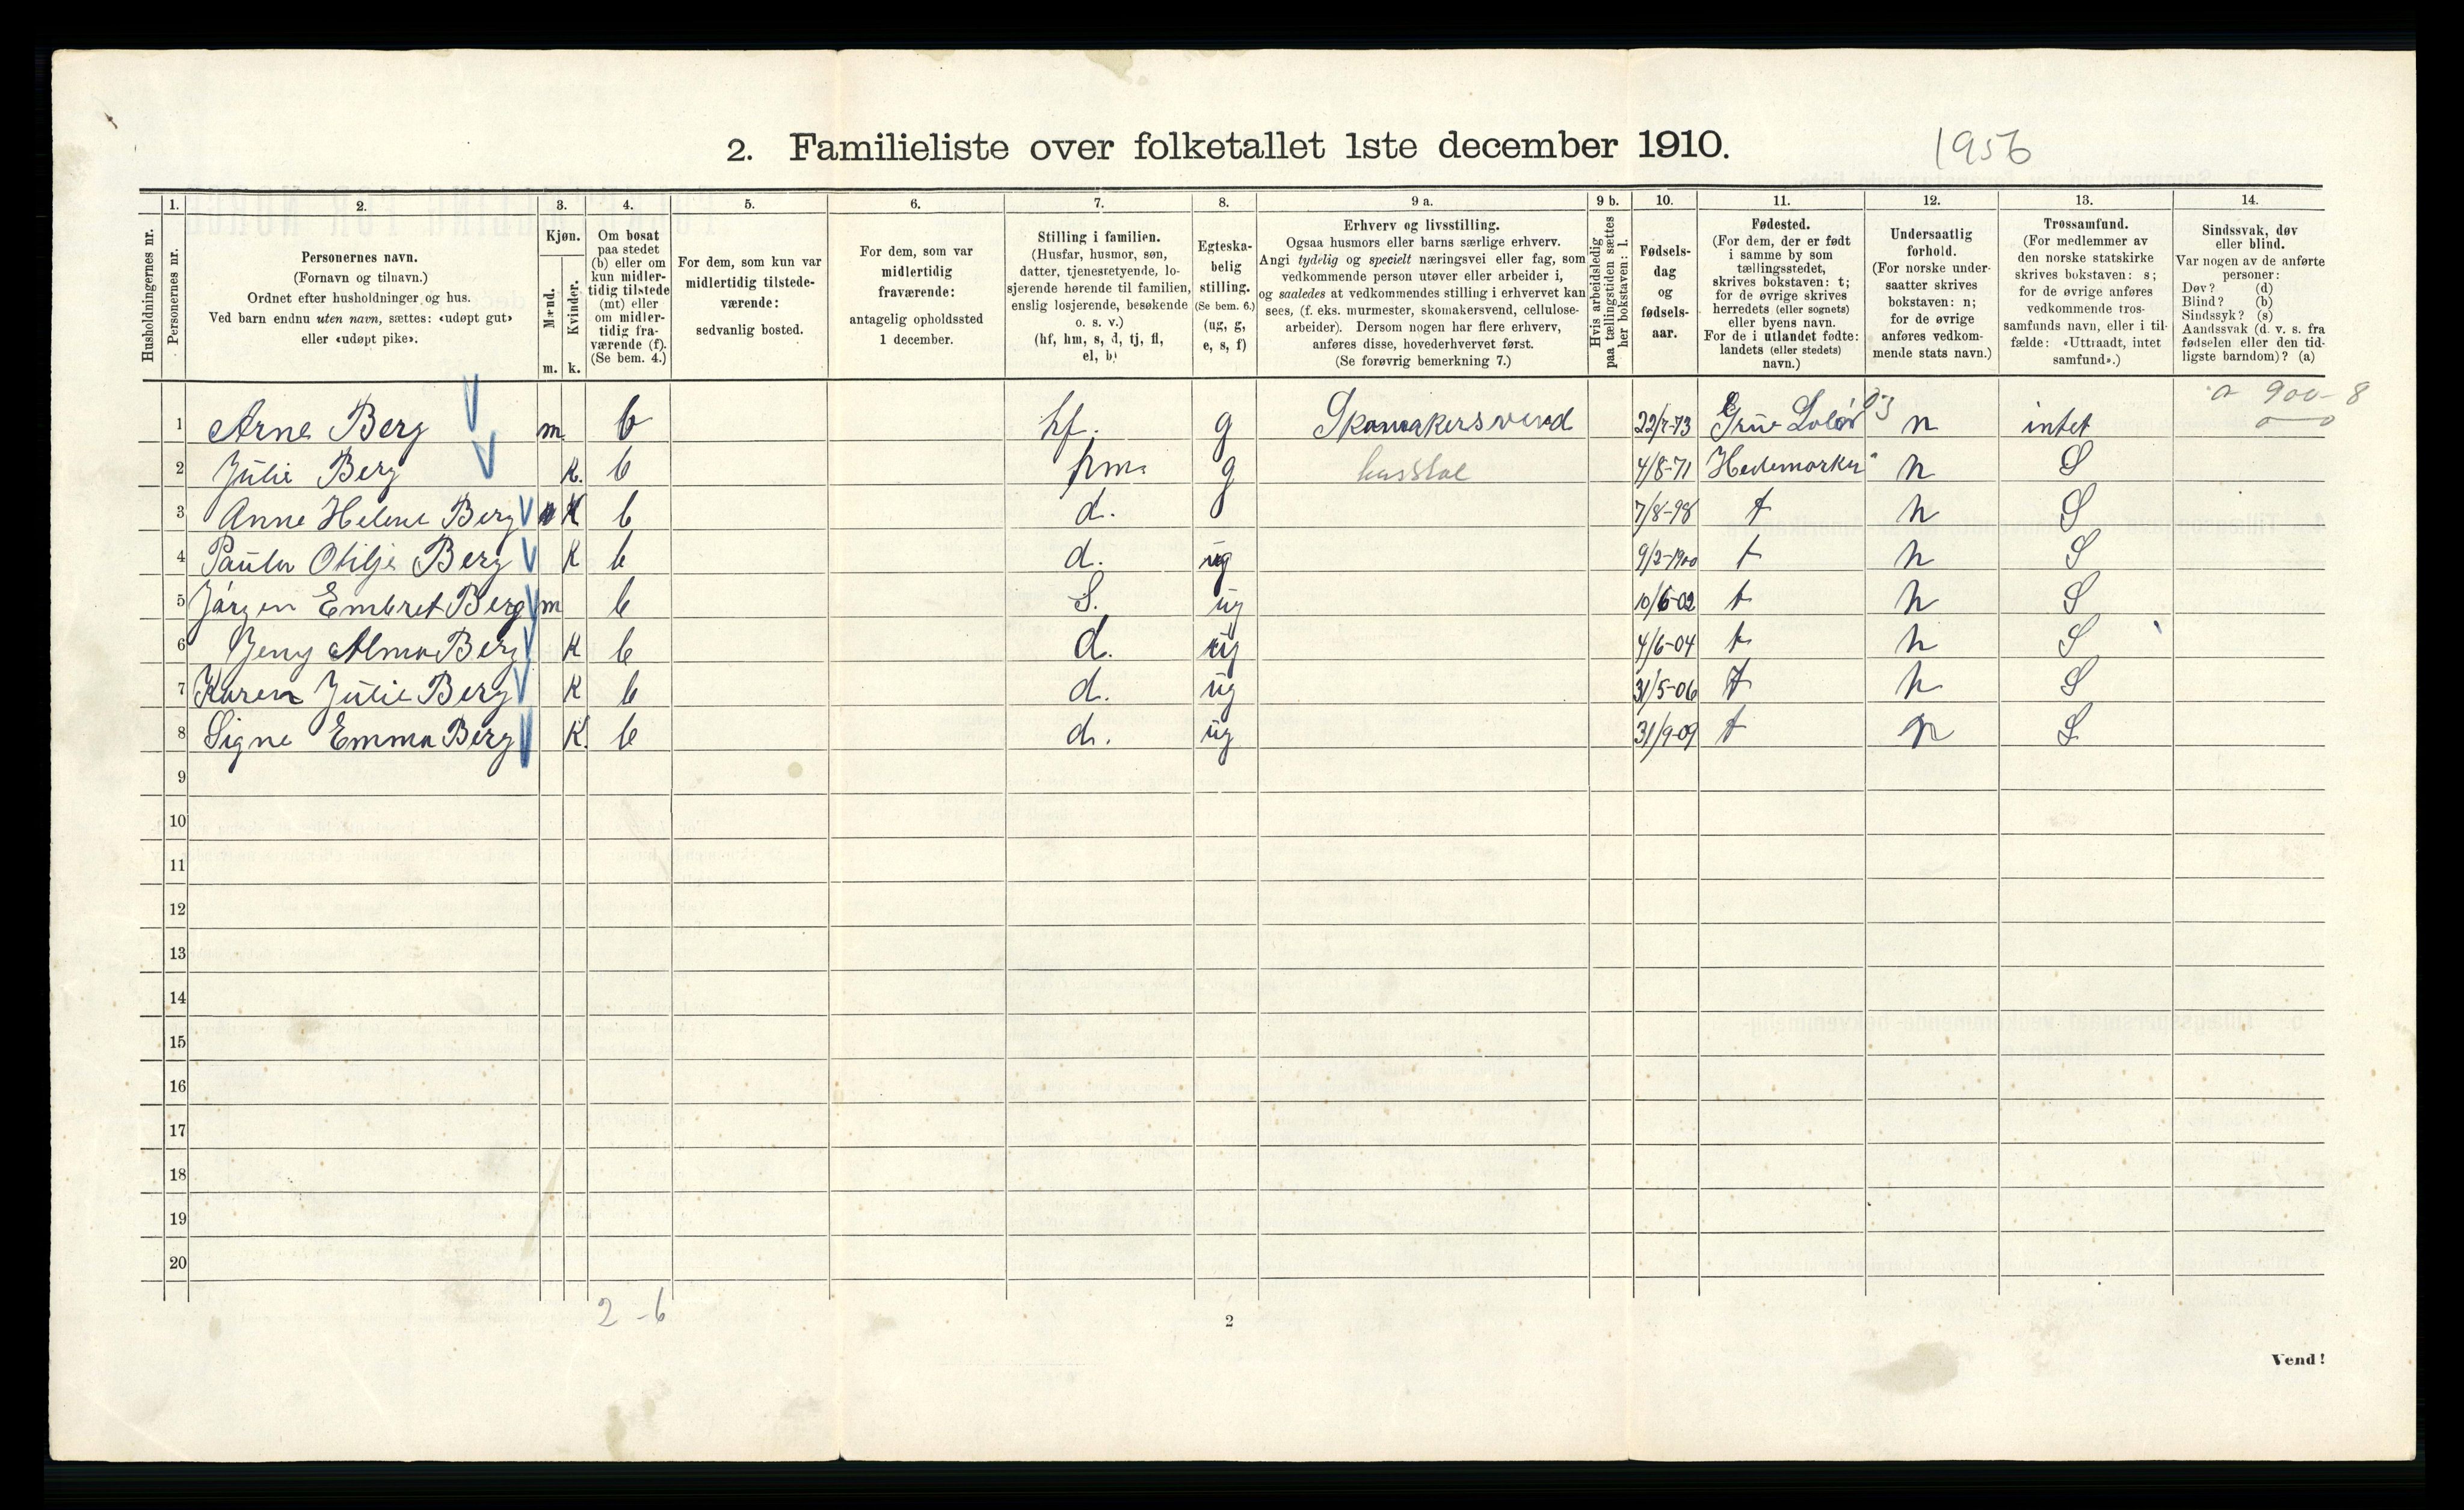 2. Familieliste over folketallet 1ste december 1910.
1956
1. 2. 3. 4. 5. 6. 7. 8. 9 a. 9 b. 10. 11. 12. 13. 14.
Husholdningernes nr.
Personernes nr.
Personernes navn.
(Fornavn og tilnavn.)
Ordnet efter husholdninger og hus.
Ved barn endnu uten navn, sættes: «udøpt gut»
eller «udøpt pike».
Kjøn.
Mænd.
Kvinder.
m. k.
Om bosat
paa stedet
(b) eller om
kun midler-
tidig tilstede
(mt) eller
om midler-
tidig fra-
værende (f).
(Se bem. 4.)
For dem, som kun var
midlertidig tilstede-
værende:
sedvanlig bosted.
For dem, som var
midlertidig
fraværende:
antagelig opholdssted
1 december.
Stilling i familien.
(Husfar, husmor, søn,
datter, tjenestetyende, lo-
sjerende hørende til familien,
enslig losjerende, besøkende
o. s. v.)
(hf, hm, s, d, tj, fl,
el, b)
Egteska-
belig
stilling.
(Se bem. 6.)
(ug, g,
e, s, f)
Erhverv og livsstilling.
Ogsaa husmors eller barns særlige erhverv.
Angi tydelig og specielt næringsvei eller fag, som
vedkommende person utøver eller arbeider i,
og saaledes at vedkommendes stilling i erhvervet kan
sees, (f. eks. murmester, skomakersvend, cellulose-
arbeider). Dersom nogen har flere erhverv,
anføres disse, hovederhvervet først.
(Se forøvrig bemerkning 7.)
Hvis arbeidsledig
paa tællingstiden sættes
her bokstaven: l.
Fødsels-
dag
og
fødsels-
aar.
Fødested.
(For dem, der er født
i samme by som
tællingsstedet,
skrives bokstaven: t;
for de øvrige skrives
herredets (eller sognets)
eller byens navn.
For de i utlandet fødte:
landets (eller stedets)
navn.)
Undersaatlig
forhold.
(For norske under-
saatter skrives
bokstaven: n;
for de øvrige
anføres vedkom-
mende stats navn.)
Trossamfund.
(For medlemmer av
den norske statskirke
skrives bokstaven: s;
for de øvrige anføres
vedkommende tros-
samfunds navn, eller i til-
fælde: «Uttraadt, intet
samfund».)
Sindssvak, døv
eller blind.
Var nogen av de anførte
personer:
Døv? (d)
Blind? (b)
Sindssyk? (s)
Aandssvak (d. v. s. fra
fødselen eller den tid-
ligste barndom)? (a)
900-8
0 — 0
1 Arne Berg m. b hf. g Skomakersvend 22/7-73 Grue Solør 03 n intet
2 Julie Berg k. b hm. g husstel 4/8-71 Hedemarken n S
3 Anne Helene Berg K b d. 7/8-98 t n S
4 Paula Otilje Berg K b d. ug 9/2-1900 t n S
5 Jørgen Embret Berg m b S. ug 10/6-02 t n S
6 Jeny Alma Berg K b d. ug 4/6-04 t n S
7 Karen Julie Berg K b d. ug 31/5-06 t n S
8 Signe Emma Berg K. b d. ug 31/9-09 t n S
9
10
11
12
13
14
15
16
17
18
19
20
2 - 6
2
Vend!